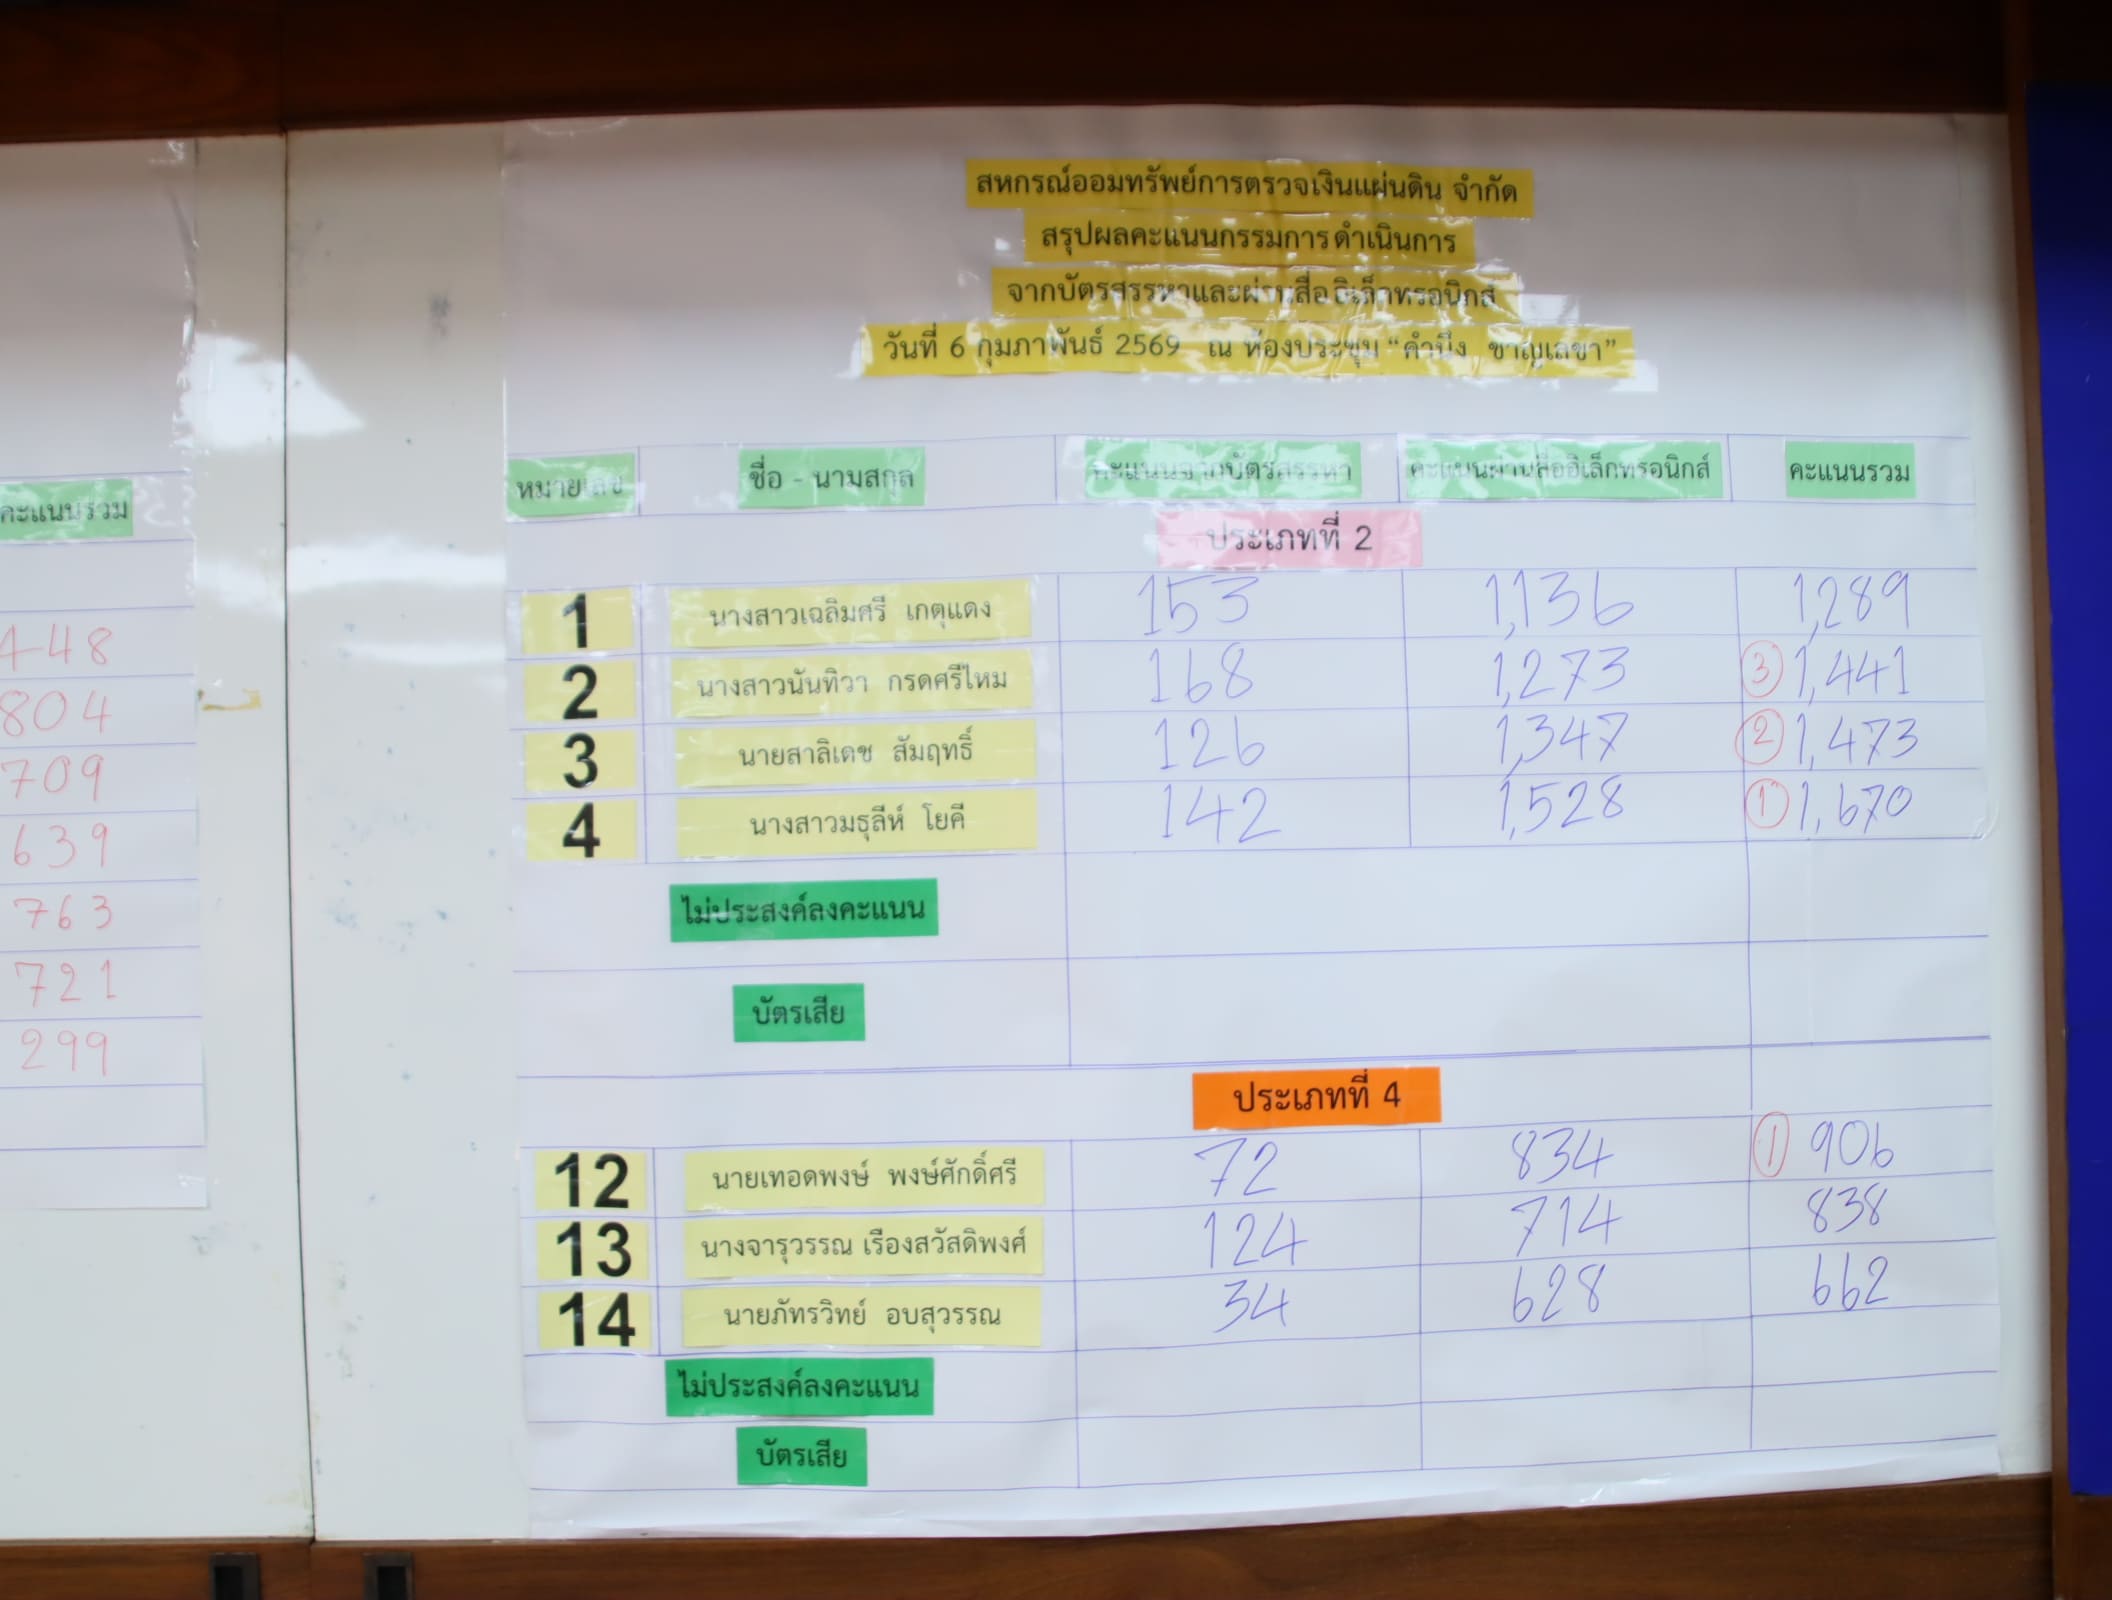 สหกรณ์ออมทรัพย์การตรวจเงินแผ่นดิน จำกัด
สรุปผลคะแนนกรรมการดำเนินการ
จากบัตรสรรหาและผ่านสื่ออิเล็กทรอนิกส์
วันที่ 6 กุมภาพันธ์ 2569 ณ ห้องประชุม “คำนึง ชาญเลขา”
คะแนนรวม
448
804
709
639
763
721
299
หมายเลข ชื่อ - นามสกุล คะแนนจากบัตรสรรหา คะแนนผ่านสื่ออิเล็กทรอนิกส์ คะแนนรวม
ประเภทที่ 2
1 นางสาวเฉลิมศรี เกตุแดง 153 1,136 1,289
2 นางสาวนันทิวา กรดศรีไหม 168 1,273 ③ 1,441
3 นายสาลิเดช สัมฤทธิ์ 126 1,347 ② 1,473
4 นางสาวมธุลีห์ โยคี 142 1,528 ① 1,670
ไม่ประสงค์ลงคะแนน
บัตรเสีย
ประเภทที่ 4
12 นายเทอดพงษ์ พงษ์ศักดิ์ศรี 72 834 ① 906
13 นางจารุวรรณ เรืองสวัสดิพงศ์ 124 714 838
14 นายภัทรวิทย์ อบสุวรรณ 34 628 662
ไม่ประสงค์ลงคะแนน
บัตรเสีย